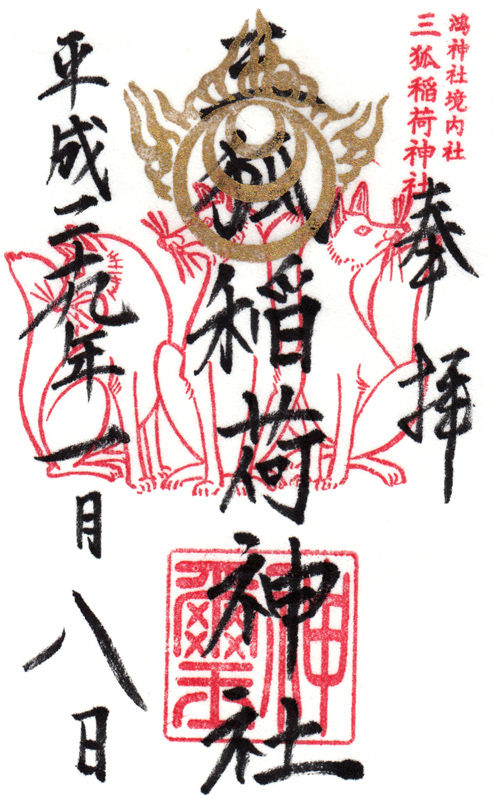 鴻神社境内社
三狐稲荷神社
奉拝
三狐稲荷神社
平成二十九年一月八日
神璽